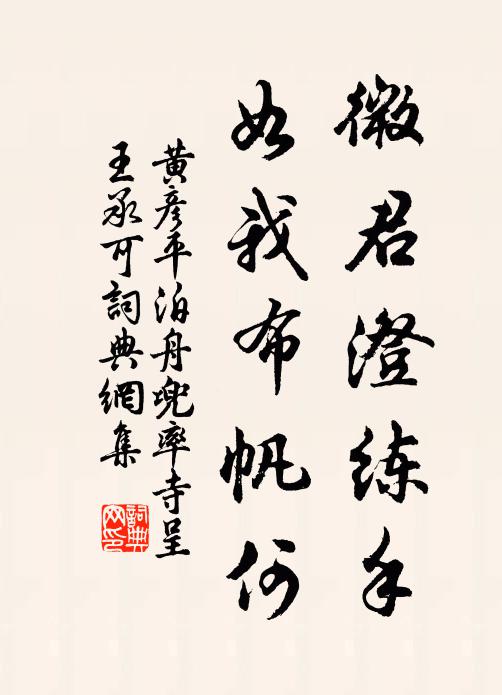 微君澄练手
如我布帆何
黄彦平泊舟兜率寺呈
王承可詞典網集
詞典
网印